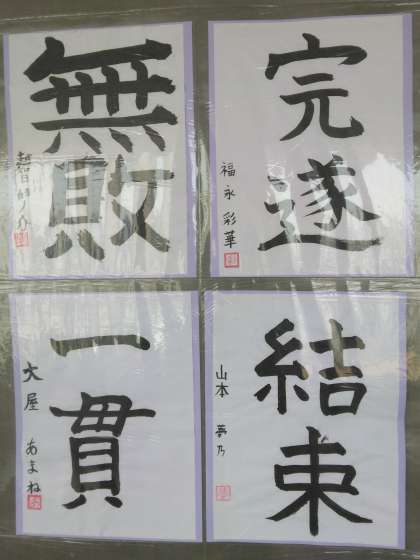 完遂
福永 彩華
無敗
結束
山本 夢乃
一貫
大屋 あまね